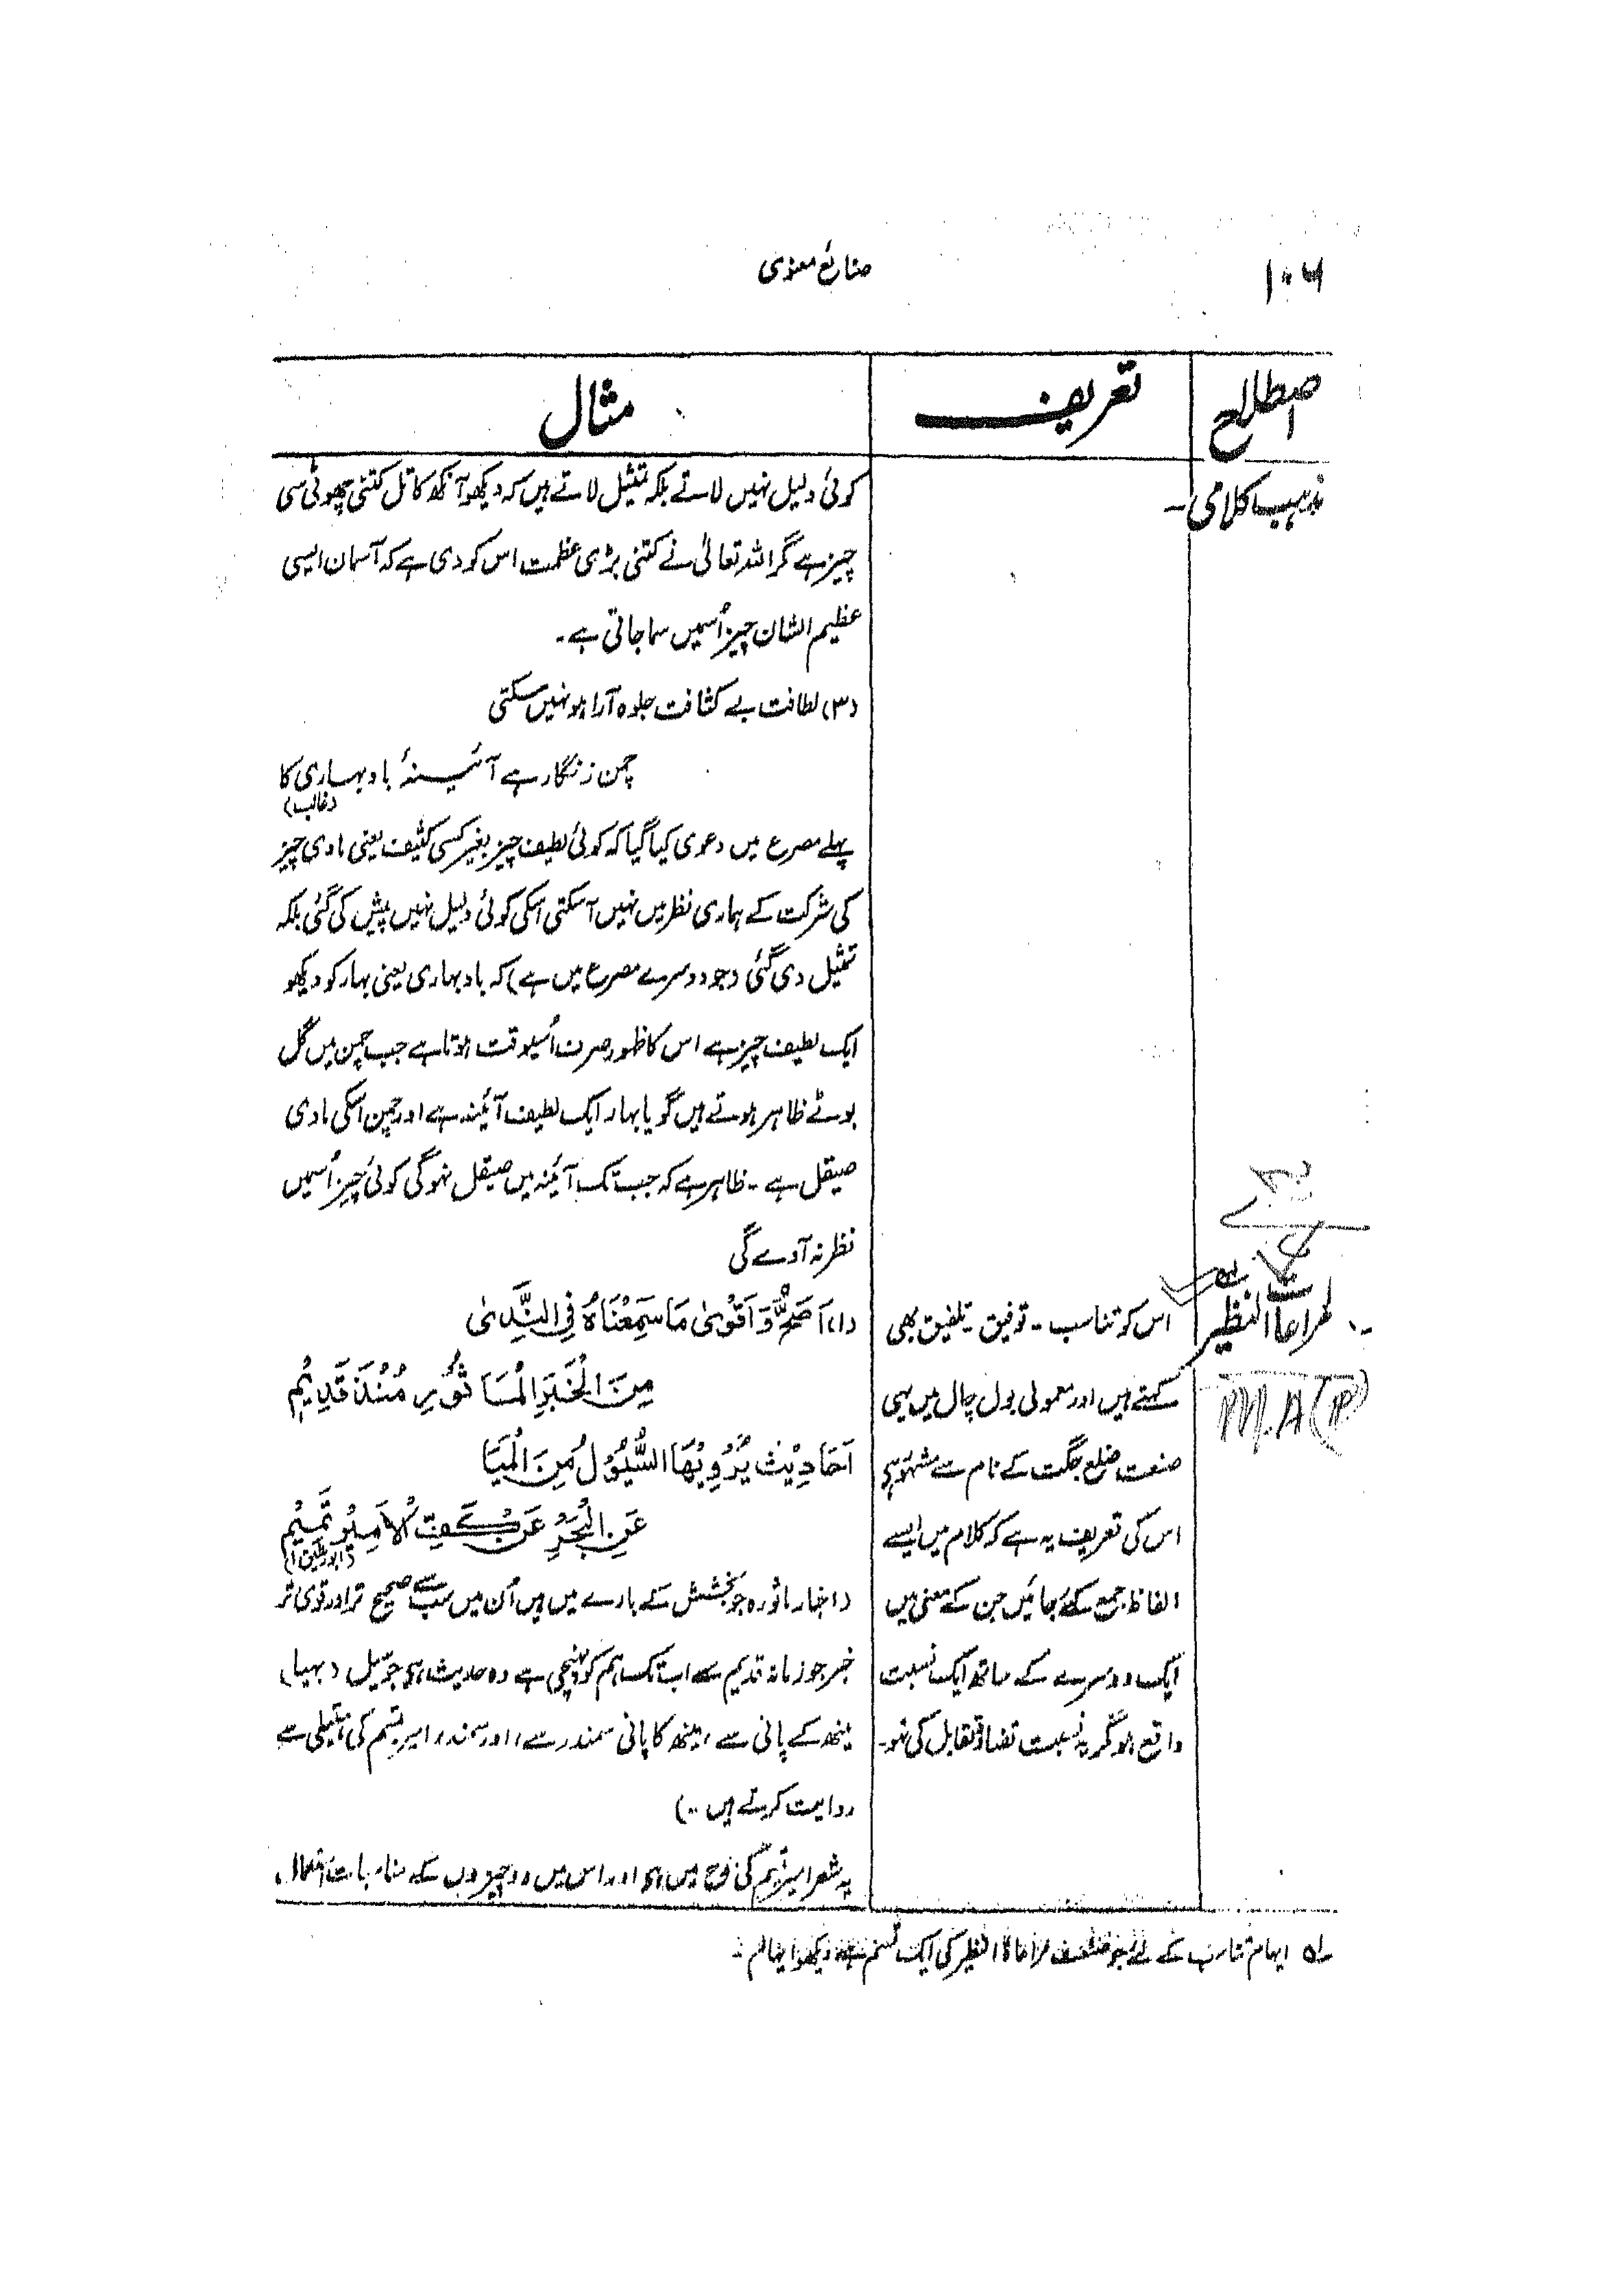 ۱۰۶
صنائع معنوی
اصطلاح
تعریف
مثال
مذہب کلامی۔
کوئی دلیل نہیں لاتے بلکہ تمثیل لاتے ہیں کہ دیکھو آنکھ کا تل کتنی چھوٹی سی
چیز ہے مگر اللہ تعالیٰ نے کتنی بڑی عظمت اس کو دی ہے کہ آسمان ایسی
عظیم الشان چیز اُسمیں سما جاتی ہے۔
(۳) لطافت بے کثافت جلوہ آرا ہو نہیں سکتی
چمن زنگار ہے آئینۂ باد بہاری کا
(غالب)
پہلے مصرع میں دعوی کیا گیا کہ کوئی لطیف چیز بغیر کسی کثیف یعنی مادی چیز
کی شرکت کے ہماری نظر میں نہیں آسکتی اسکی کوئی دلیل نہیں پیش کی گئی بلکہ
تمثیل دی گئی (جو دوسرے مصرع میں ہے) کہ باد بہاری یعنی بہار کو دیکھو
ایک لطیف چیز ہے اس کا ظہور صرف اُسیوقت ہوتا ہے جب چمن میں گل
بوٹے ظاہر ہوتے ہیں گویا بہار ایک لطیف آئینہ ہے اور چمن اسکی مادی
صیقل ہے ۔ ظاہر ہے کہ جب تک آئینہ میں صیقل نہوگی کوئی چیز اُسمیں
نظر نہ آوے گی
مراعاۃ النظیر
M.A (P)
اس کو تناسب ۔ توفیق ۔ تلفیق بھی
کہتے ہیں اور معمولی بول چال میں یہی
صنعت ضلع جگت کے نام سے مشہور ہی
اس کی تعریف یہ ہے کہ کلام میں ایسے
الفاظ جمع کئے جائیں جن کے معنی میں
ایک دوسرے کے ساتھ ایک نسبت
واقع ہو مگر یہ نسبت تضاد و تقابل کی نہو۔
(۱) اَصَحُّ وَ اَقْوٰی مَا سَمِعْنَاہُ فِی النَّدیٰ
مِنَ الْخَبَرِ الْمَاثُوْرِ مُنْذُ قَدِیْمٖ
اَحَادِیْثُ یَرْوِیْهَا السُّیُوْلُ مِنَ الْحَیَا
عَنِ الْبَحْرِ عَنْ کَفِّ الْاَمِیْرِ تَمِیْمٖ
(اخبار ماثورہ جو بخشش کے بارے میں ہیں اُن میں سب سے صحیح تر اور قوی تر
خبر جو زمانہ قدیم سے اب تک ہم کو پہنچی ہے وہ حدیث ہی جو سَیل (بہیا)
مینھ کے پانی سے، مینھ کا پانی سمندر سے، اور سمندر، امیر تمیم کی ہتھیلی سے
روایت کرتے ہیں ۔۔)
یہ شعر امیر تمیم کی مدح میں ہی اور اس میں دو چیزوں کے مناسبات استعمال
لہ ایہام تناسب کے لئے جو صنعت مراعاۃ النظیر کی ایک قسم ہے دیکھو ایہام ۔